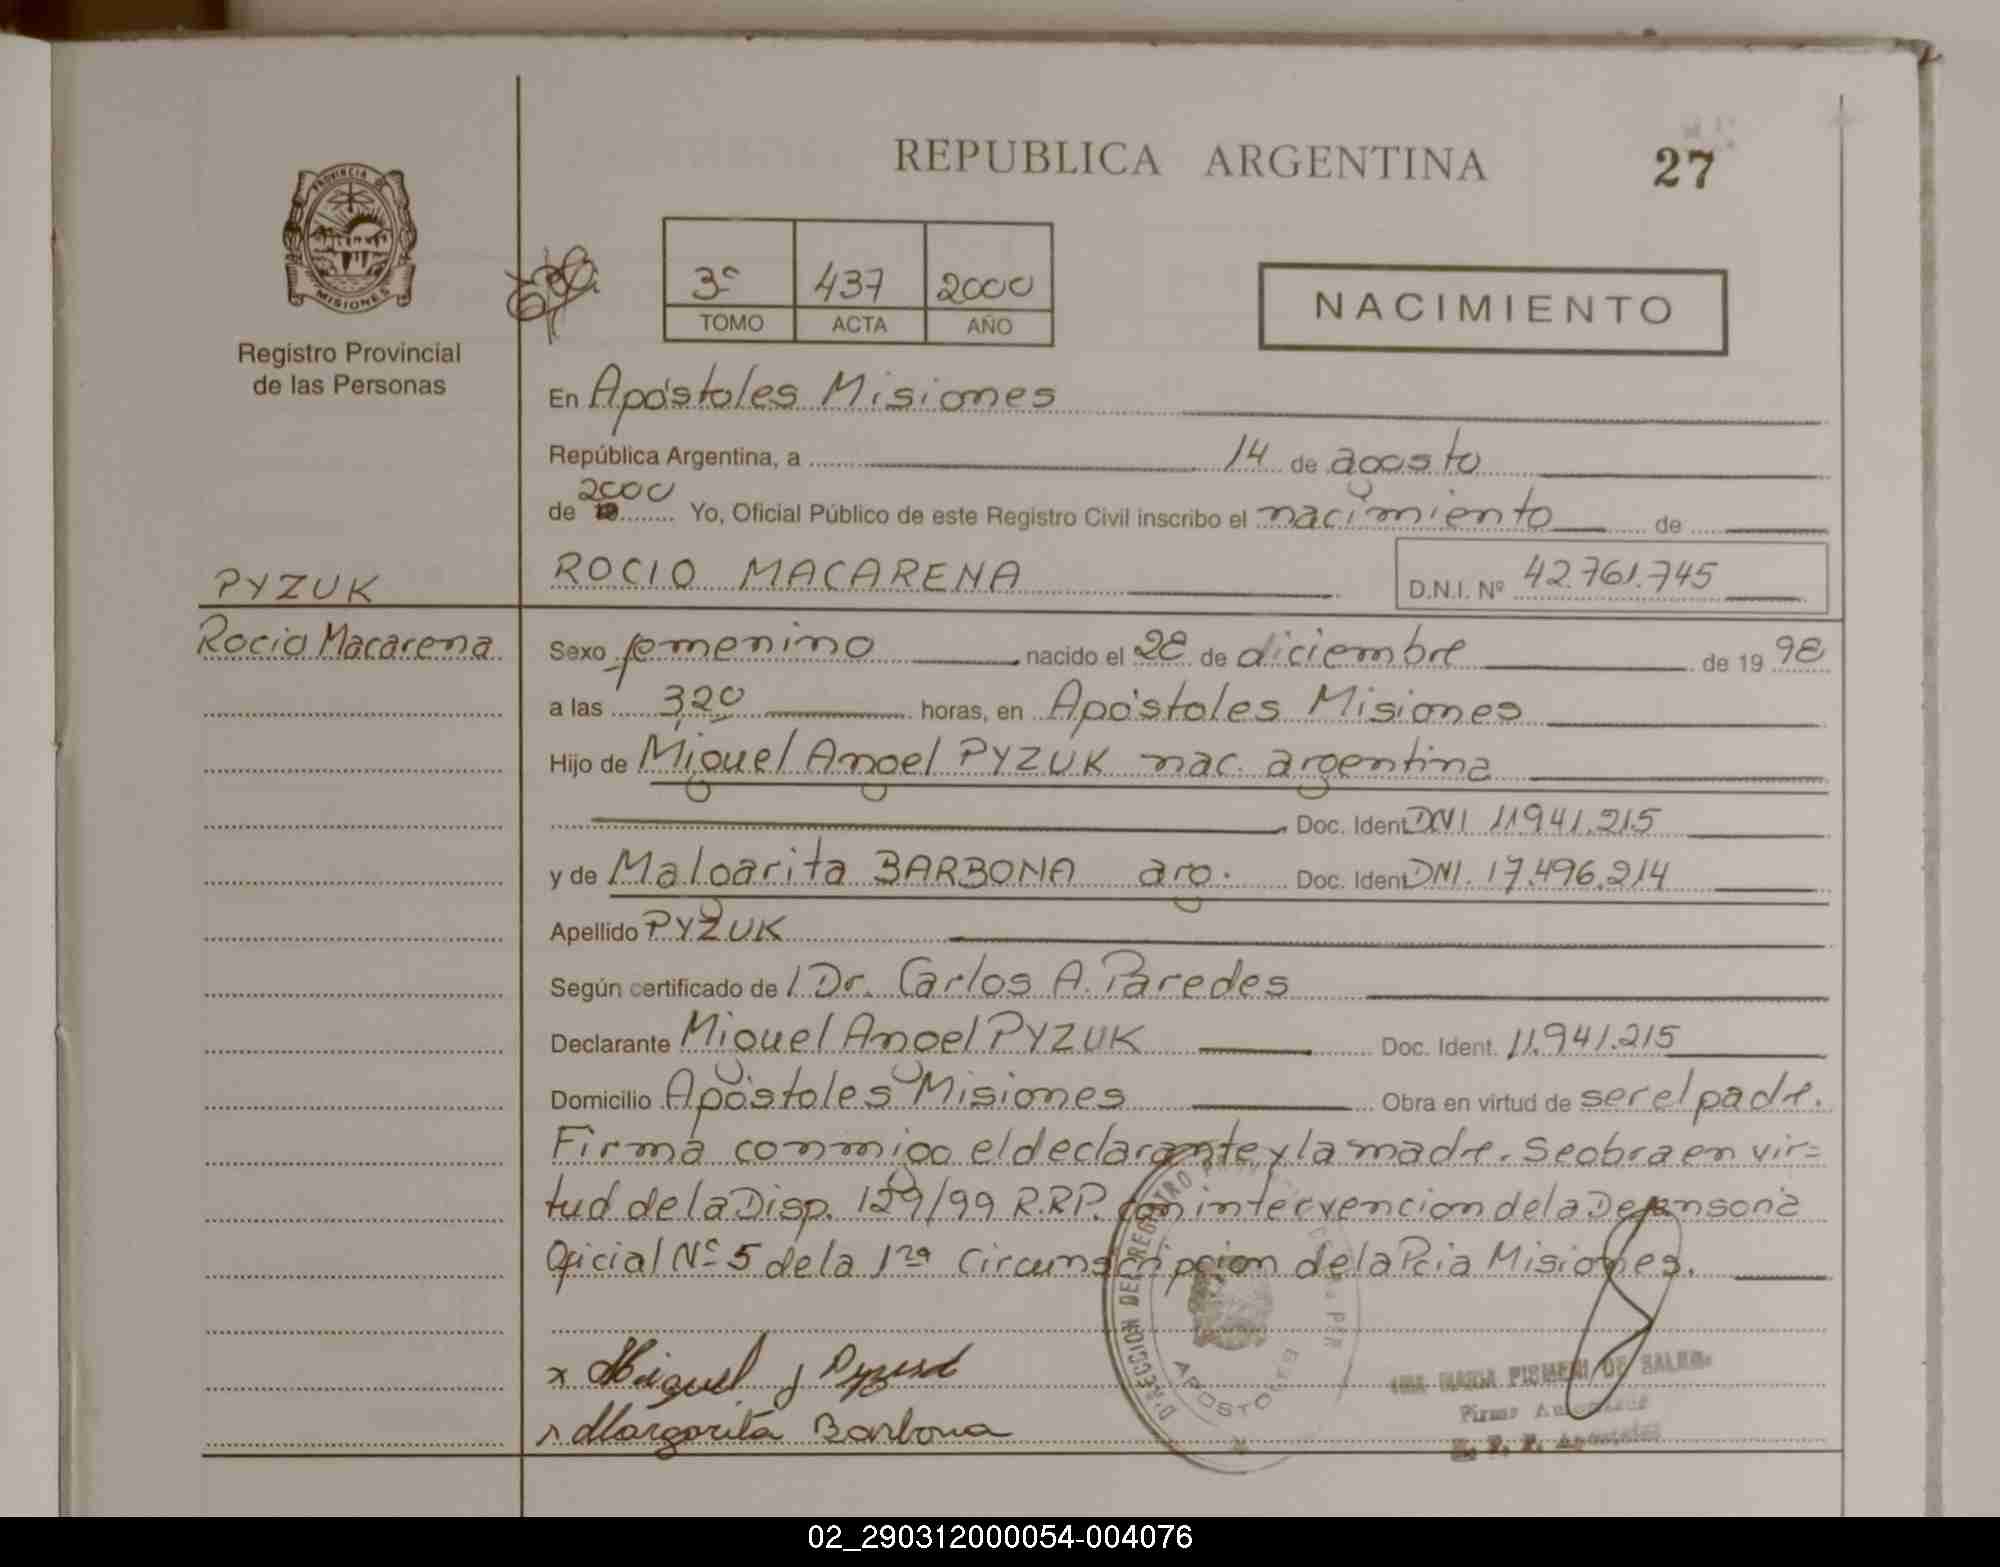 REPUBLICA ARGENTINA
27
PROVINCIA DE
MISIONES
Registro Provincial
de las Personas
3º 437 2000
TOMO ACTA AÑO
NACIMIENTO
En Apóstoles Misiones
República Argentina, a 14 de agosto
2000
de 19 Yo, Oficial Público de este Registro Civil inscribo el nacimiento de
ROCIO MACARENA D.N.I. Nº 42.761.745
PYZUK
Rocio Macarena
Sexo femenino nacido el 28 de diciembre de 19 98
a las 3,20 horas, en Apóstoles Misiones
Hijo de Miguel Angel PYZUK nac. argentina
Doc. Ident DNI 11.941.215
y de Malgarita BARBONA arg. Doc. Ident DNI. 17.496.214
Apellido PYZUK
Según certificado de l Dr. Carlos A. Paredes
Declarante Miguel Angel PYZUK Doc. Ident. 11.941.215
Domicilio Apóstoles Misiones Obra en virtud de ser el padre.
Firma conmigo el declarante y la madre. Se obra en vir=
tud de la Disp. 129/99 R.R.P. con intervencion de la Defensoria
Oficial Nº 5 de la 1ra Circunscripcion de la Pcia Misiones.
x Miguel Pyzuk
x Margarita Barbona
DIRECCION DEL REGISTRO
APOSTOLES
DE
Firma
R. P. P. Apostoles
02_290312000054-004076